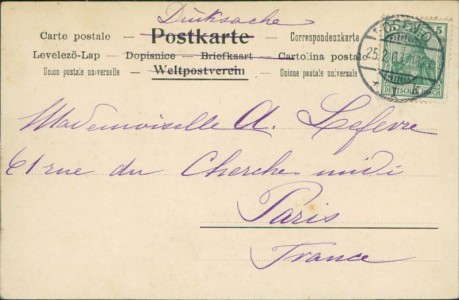 Drucksache
Carte postale — Postkarte — Correspondenzkarte
Levelező-Lap — Dopisnice — Briefkaart — Cartolina postale
Union postale universelle — Weltpostverein — Unione postale universale
5
25.2.
DEUTSCHES REICH
Mademoiselle A. Lefevre
61 rue du Cherche midi
Paris
France